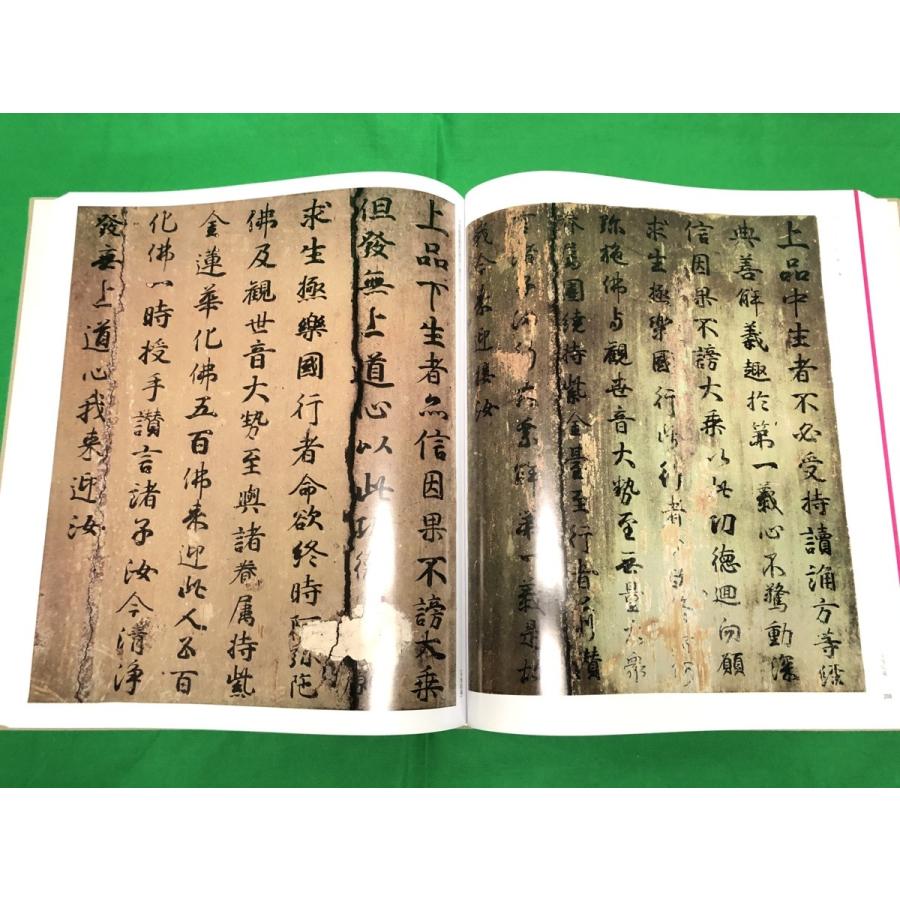 上品中生者不必受持讀誦方等経
典善解義趣於第一義心不驚動深
信因果不謗大乗以此功徳廻向願
求生極樂國行此行者
弥陁佛与觀世音大勢至无量大衆
眷属圍繞持紫金臺至行者
解第一義是故
我今来迎接汝
上品下生者亦信因果不謗大乗
但發無上道心以此功徳
求生極樂國行者命欲終時阿弥陁
佛及觀世音大勢至與諸眷属持紫
金蓮華化佛五百佛来迎此人五百
化佛一時授手讃言諸子汝今清浄
發無上道心我来迎汝